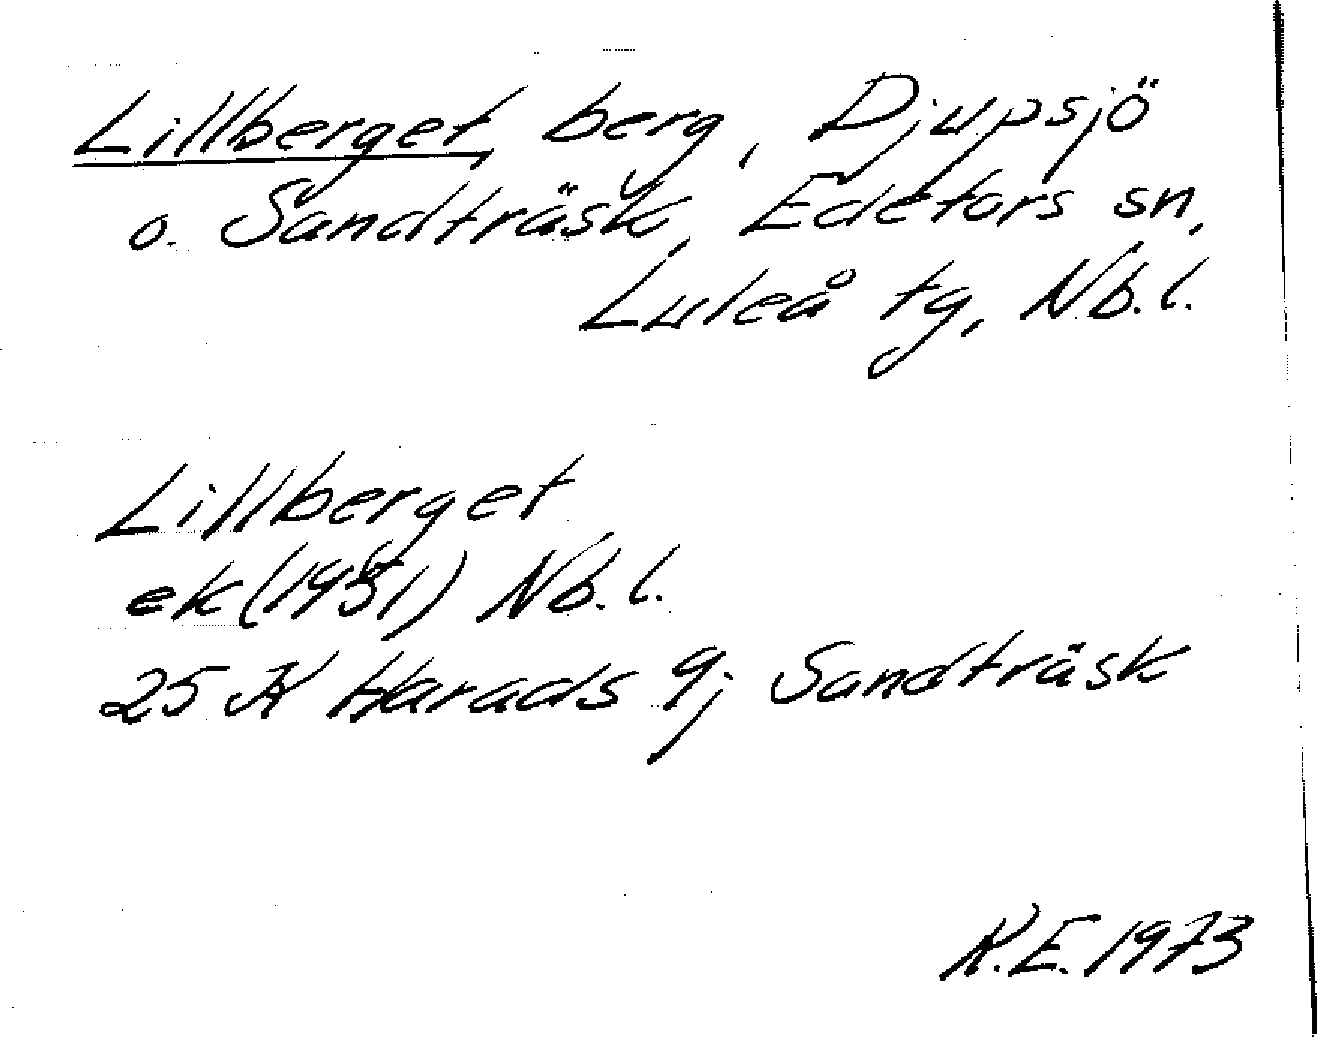 Lillberget, berg, Djupsjö
o. Sandträsk, Edefors sn,
Luleå tg, Nb.l.
Lillberget
ek (1951) Nb.l.
25 K Harads 9j Sandträsk
K.E. 1973